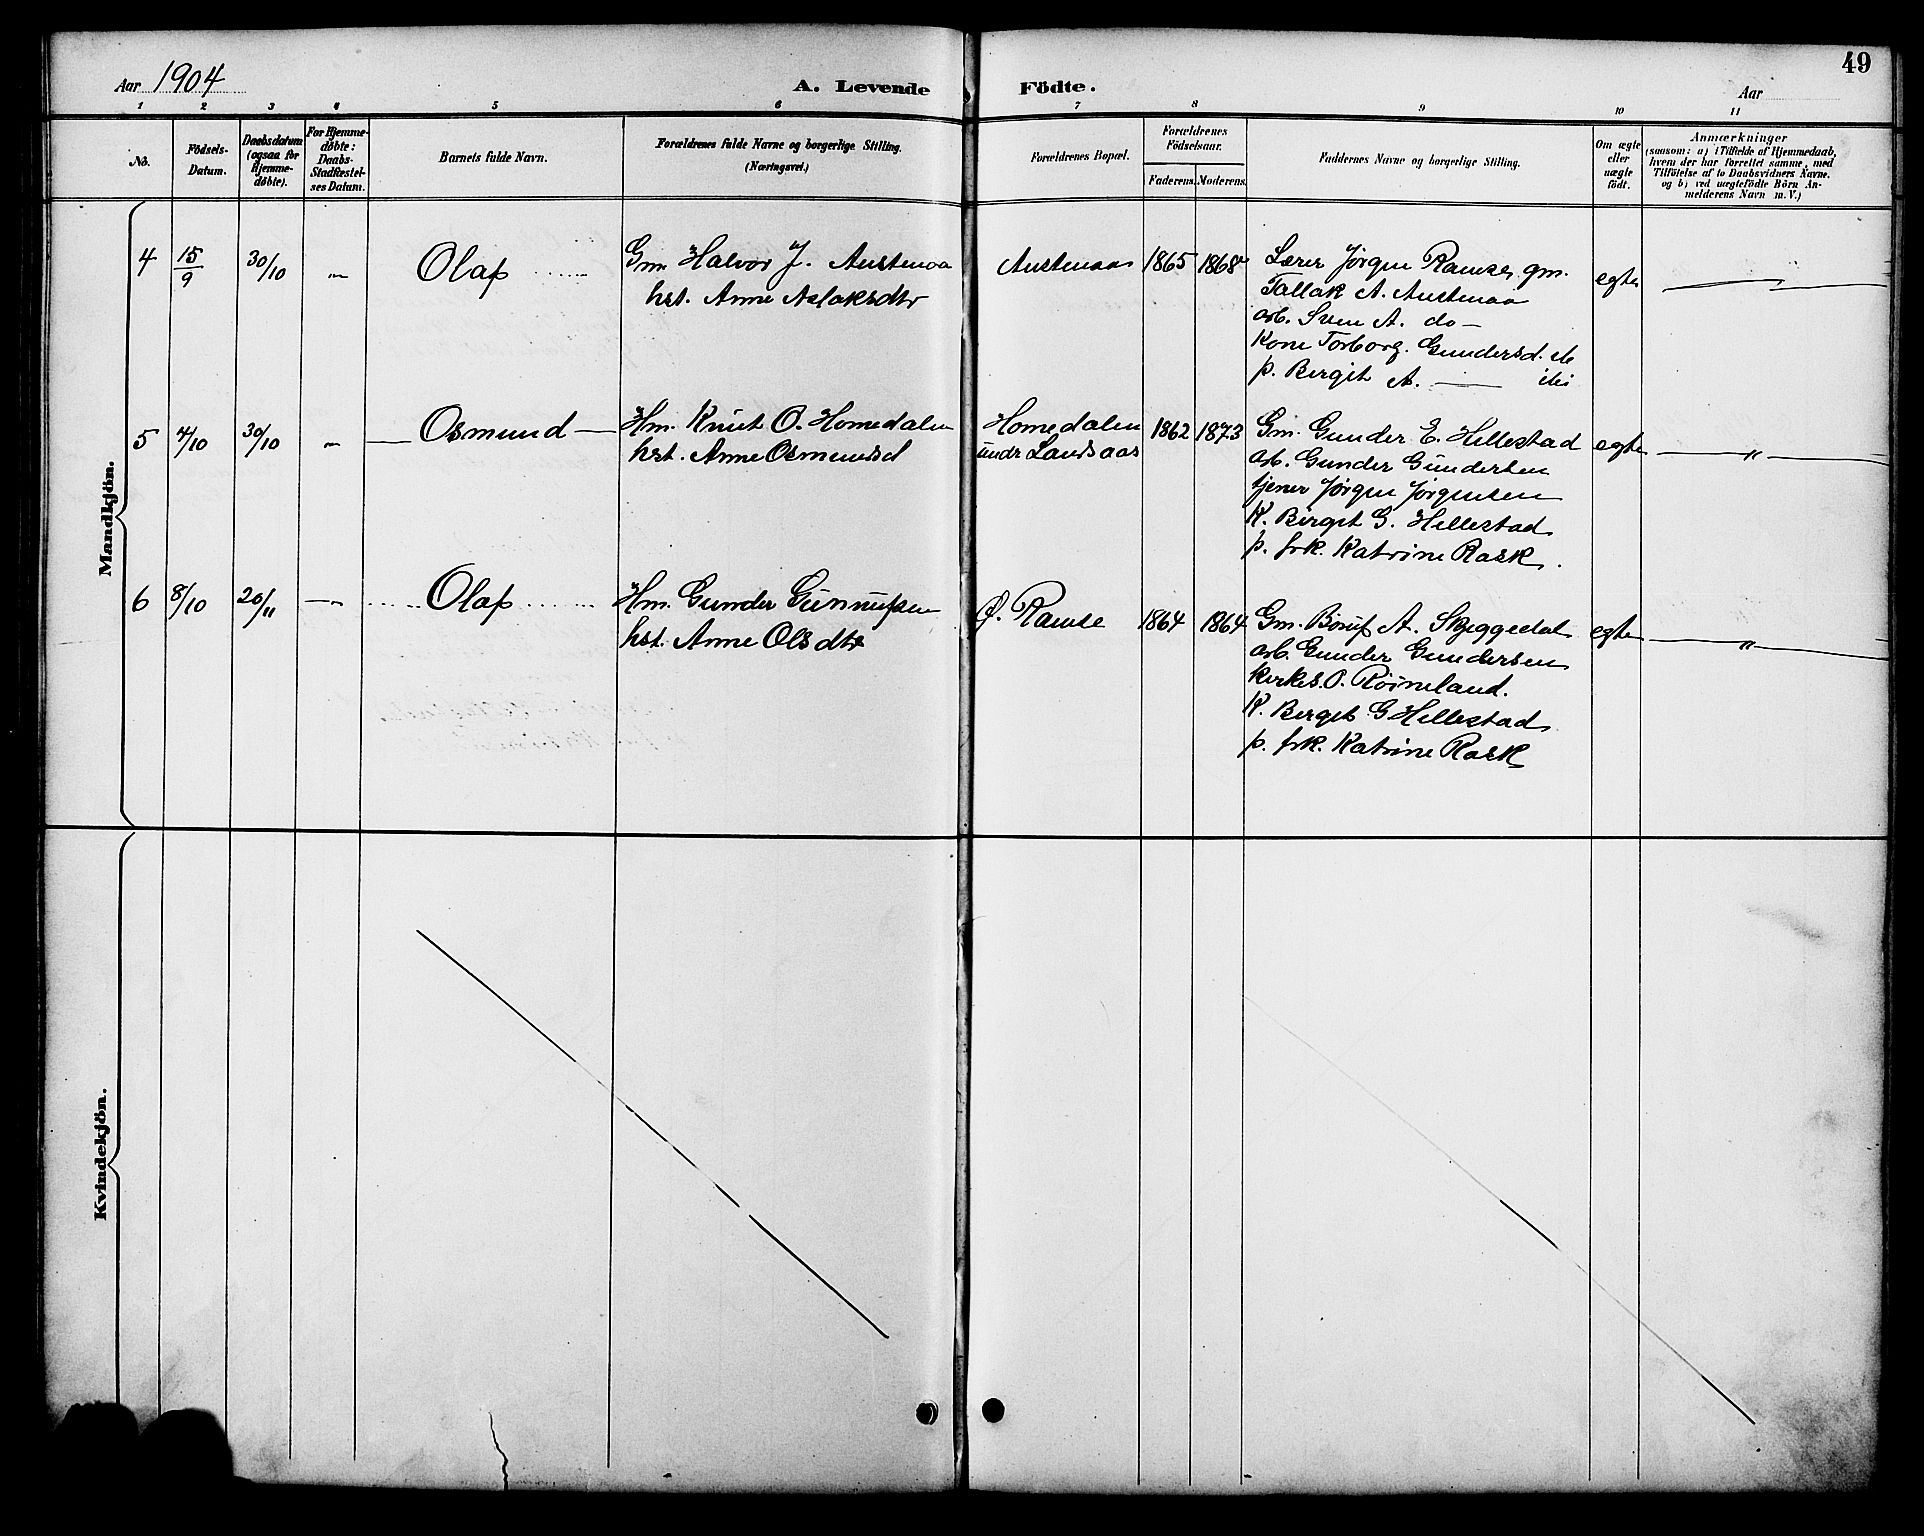 49
Aar 1904
A. Levende Födte.
Aar
1 2 3 4 5 6 7 8 9 10 11
No.
Födsels-
Datum.
Daabsdatum
(ogsaa for
Hjemme-
døbte).
For Hjemme-
døbte:
Daabs-
Stadfæstel-
ses Datum.
Barnets fulde Navn.
Forældrenes fulde Navne og borgerlige Stilling.
(Næringsvei.)
Forældrenes Bopæl.
Forældrenes
Födselsaar.
Faderens. Moderens.
Faddernes Navne og borgerlige Stilling.
Om ægte
eller
uægte
födt.
Anmærkninger
(saasom: a) i Tilfælde af Hjemmedaab,
hvem der har forrettet samme, med
Tilföielse af to Daabsvidners Navne.
og b) ved uægtefödte Börn An-
melderens Navn m. V.)
Mandkjön.
4 15/9 30/10 — Olaf
Gm. Halvor J. Austenaa
hst. Anne Aslaksdtr
Austenaa 1865 1868
Lærer Jørgen Ramse, gm.
Tallak A. Austenaa
arb. Sven A. do —
Kone Torborg Gundersd.
p. Birgit A. —
egte
5 4/10 30/10 — Osmund —
Hm. Knut O. Homedalen
hst. Anne Osmundsd
Homedalen
undr Landsaas
1862 1873
Gm. Gunder E. Hillestad
arb. Gunder Gundersen
tjener Jørgen Jørgensen
K. Birgit G. Hillestad
p. frk. Katrine Rask.
egte — " —
6 8/10 20/11 — Olaf
Hm. Gunder Gunnufsen
hst. Anne Olsdtr
Ø. Ramse 1864 1864
Gm. Boruf A. Skjeggedal
arb. Gunder Gundersen
kirkes. O. Røineland.
K. Birgit G Hillestad
p. frk. Katrine Rask
egte — " —
Kvindekjön.